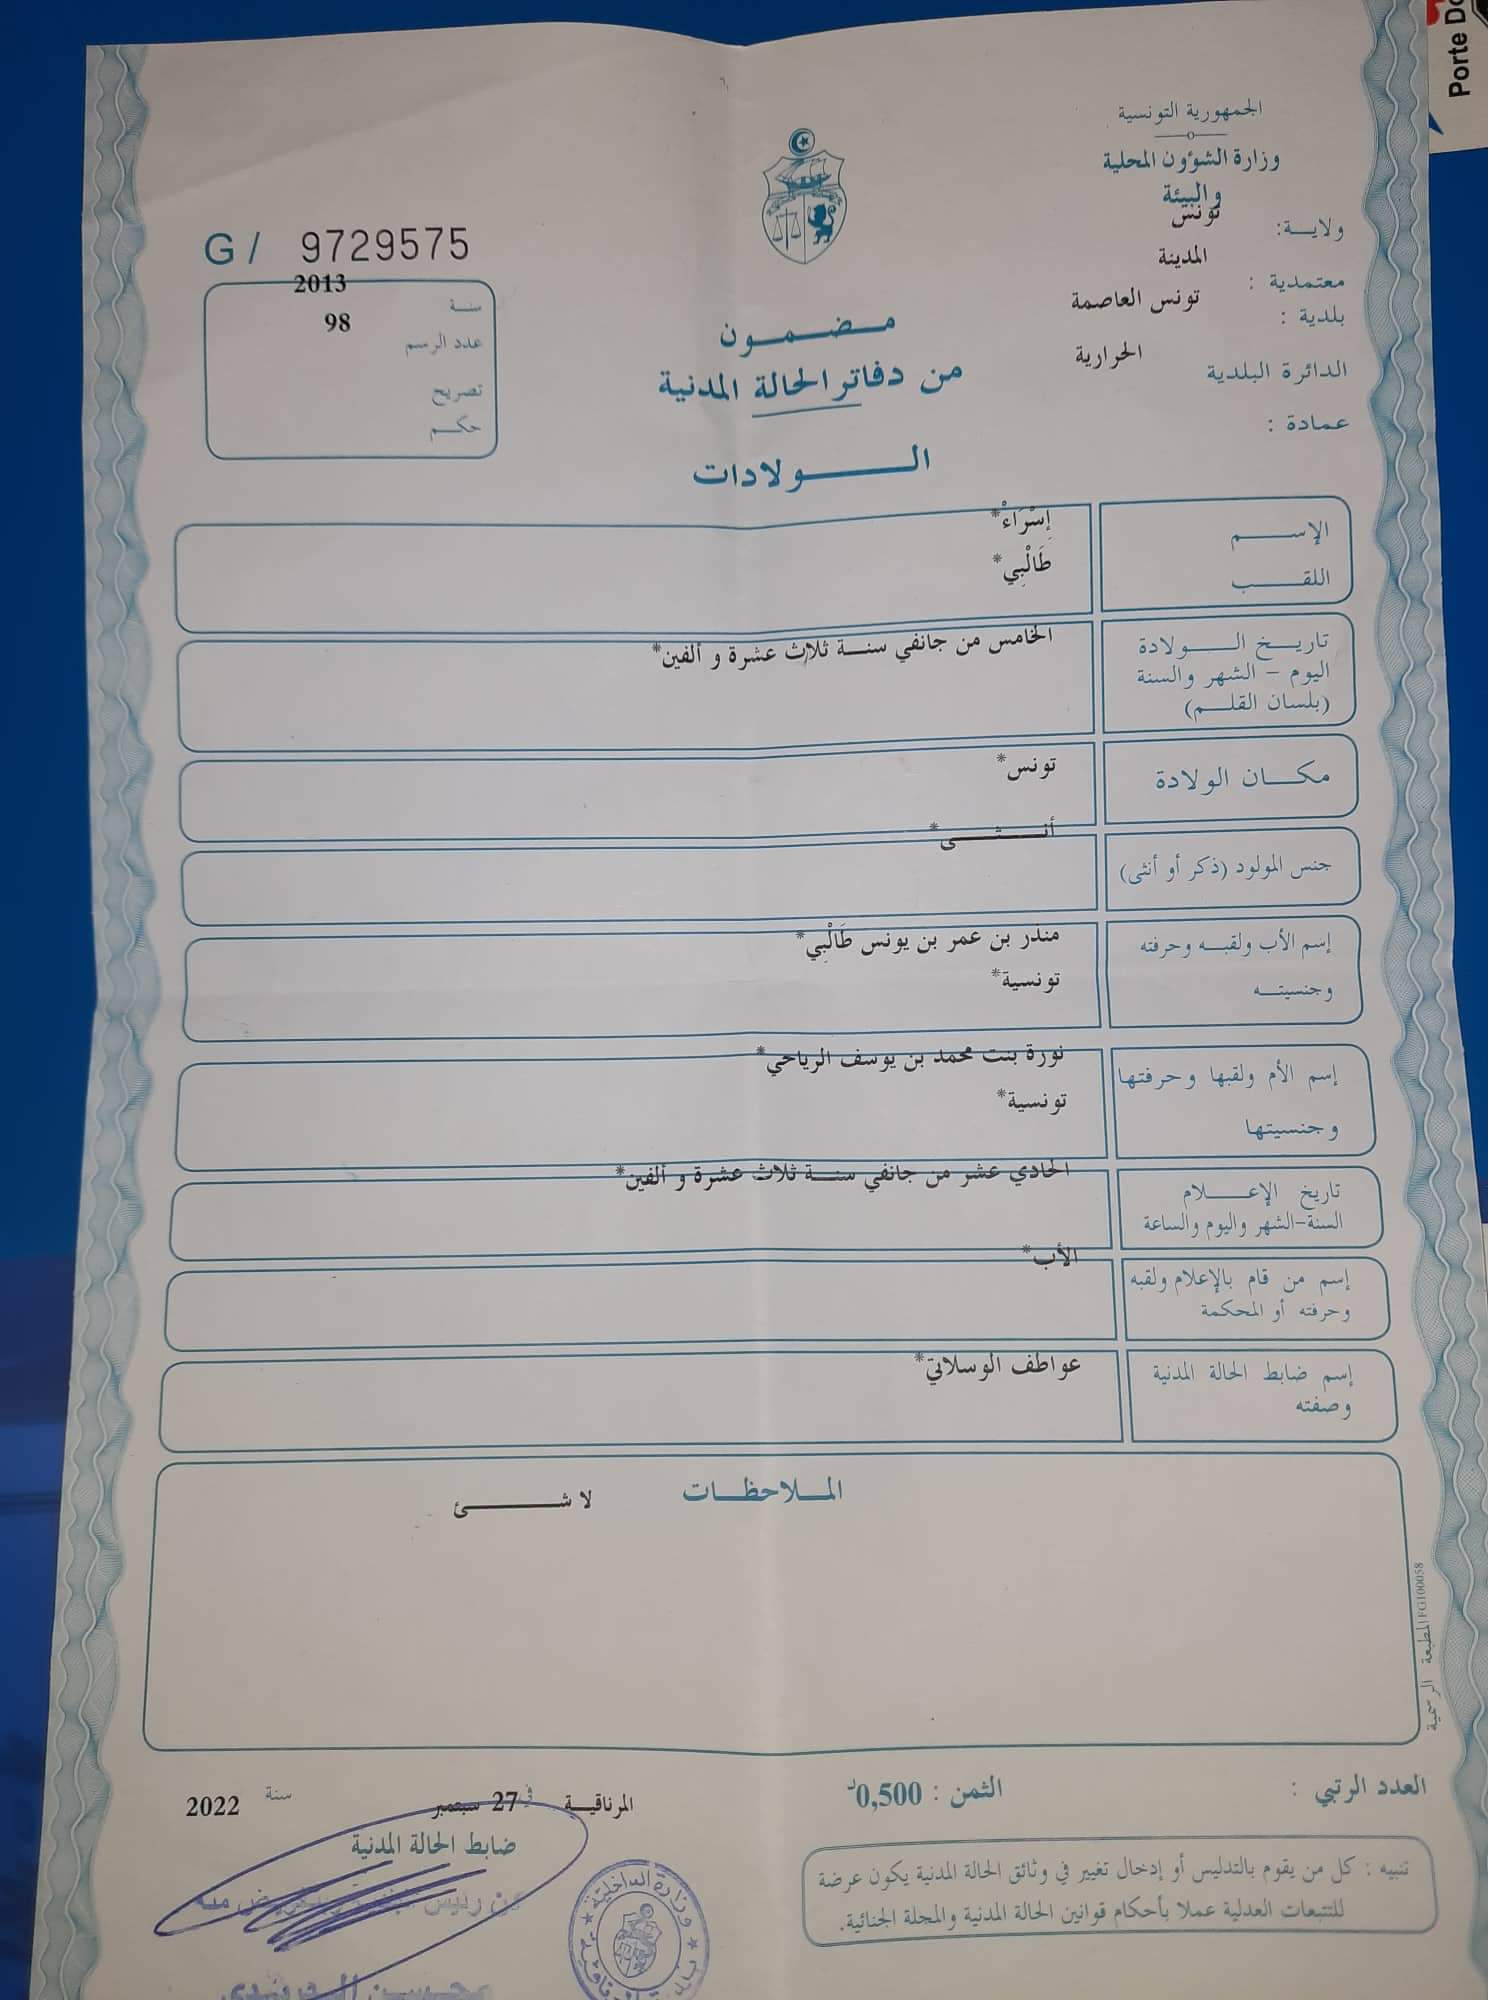 Porte Do
الجمهورية التونسية
وزارة الشؤون المحلية
والبيئة
ولايــة: تونس
معتمدية : المدينة
بلدية : تونس العاصمة
الدائرة البلدية الحرارية
عمادة :
G / 9729575
سنة 2013
عدد الرسم 98
تصريح
حكـم
مـضـمـون
من دفاتر الحالة المدنية
الـــولادات
الإســـم إِسْرَاءْ*
اللقـــب طَالْبِي*
تاريـخ الـــولادة الخامس من جانفي سنـة ثلاث عشرة و ألفين*
اليوم - الشهر والسنة
(بلسان القلـم)
مكـــان الولادة تونس*
جنس المولود (ذكر أو أنثى) أنـــثـــى*
إسم الأب ولقبـه وحرفته منذر بن عمر بن يونس طَالْبِي*
وجنسيتـه تونسية*
إسم الأم ولقبها وحرفتها نورة بنت محمد بن يوسف الرياحي*
وجنسيتها تونسية*
تاريخ الإعـــلام الحادي عشر من جانفي سنـة ثلاث عشرة و ألفين*
السنة-الشهر واليوم والساعة
إسم من قام بالإعلام ولقبه الأب*
وحرفته أو المحكمة
إسم ضابط الحالة المدنية عواطف الوسلاتي*
وصفته
المـلاحظـات
لا شـــــئ
المطبعة الرسمية FG100058
العدد الرتبي :
الثمن : 0,500د
المرناقيـة في 27 سبتمبر سنة 2022
ضابط الحالة المدنية
وزارة الداخلية
تنبيه : كل من يقوم بالتدليس أو إدخال تغيير في وثائق الحالة المدنية يكون عرضة
للتتبعات العدلية عملا بأحكام قوانين الحالة المدنية والمجلة الجنائية.